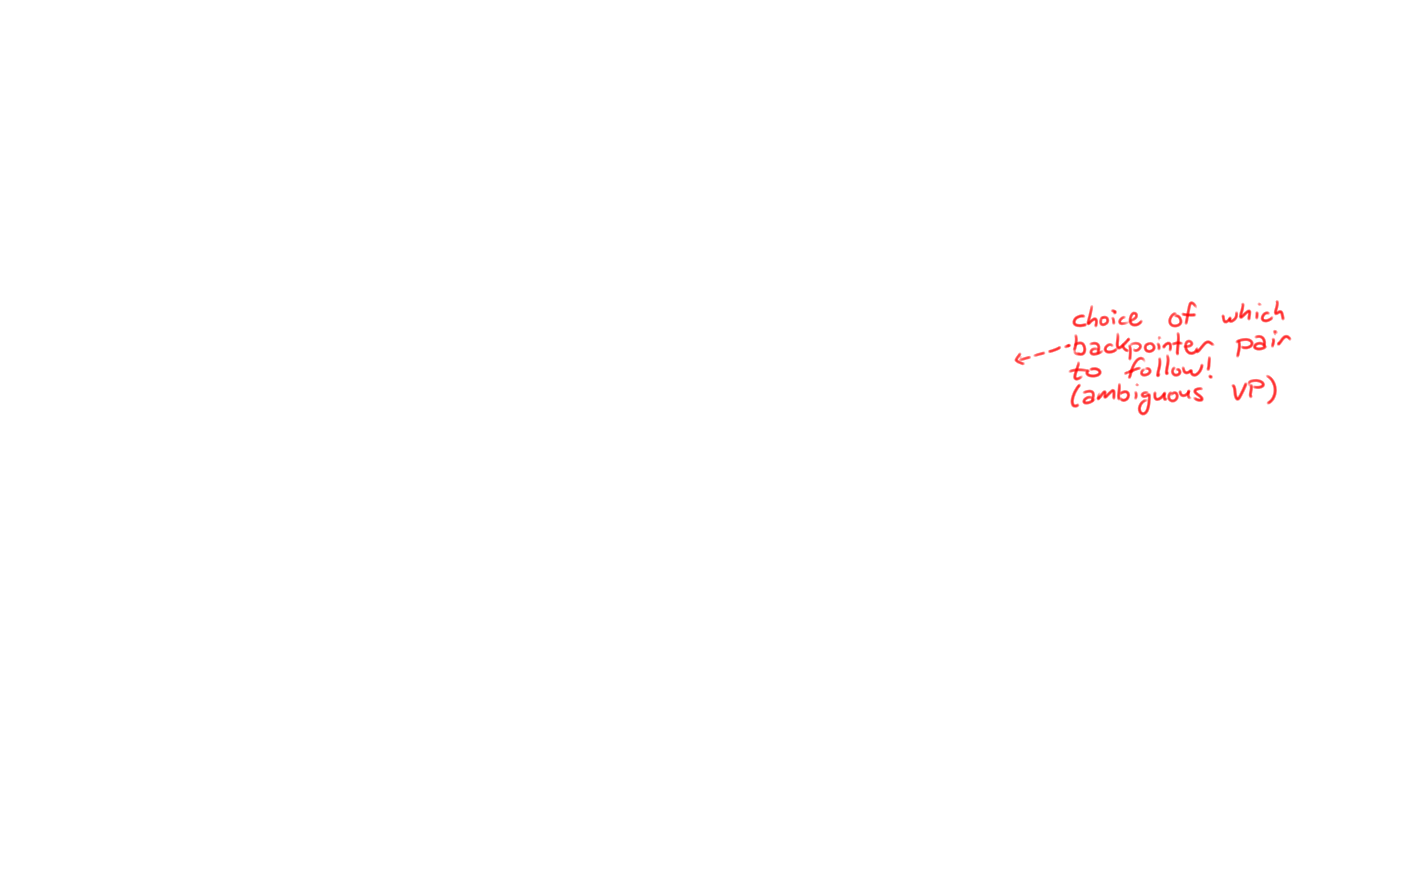 choice of which
backpointer pair
to follow!
(ambiguous VP)